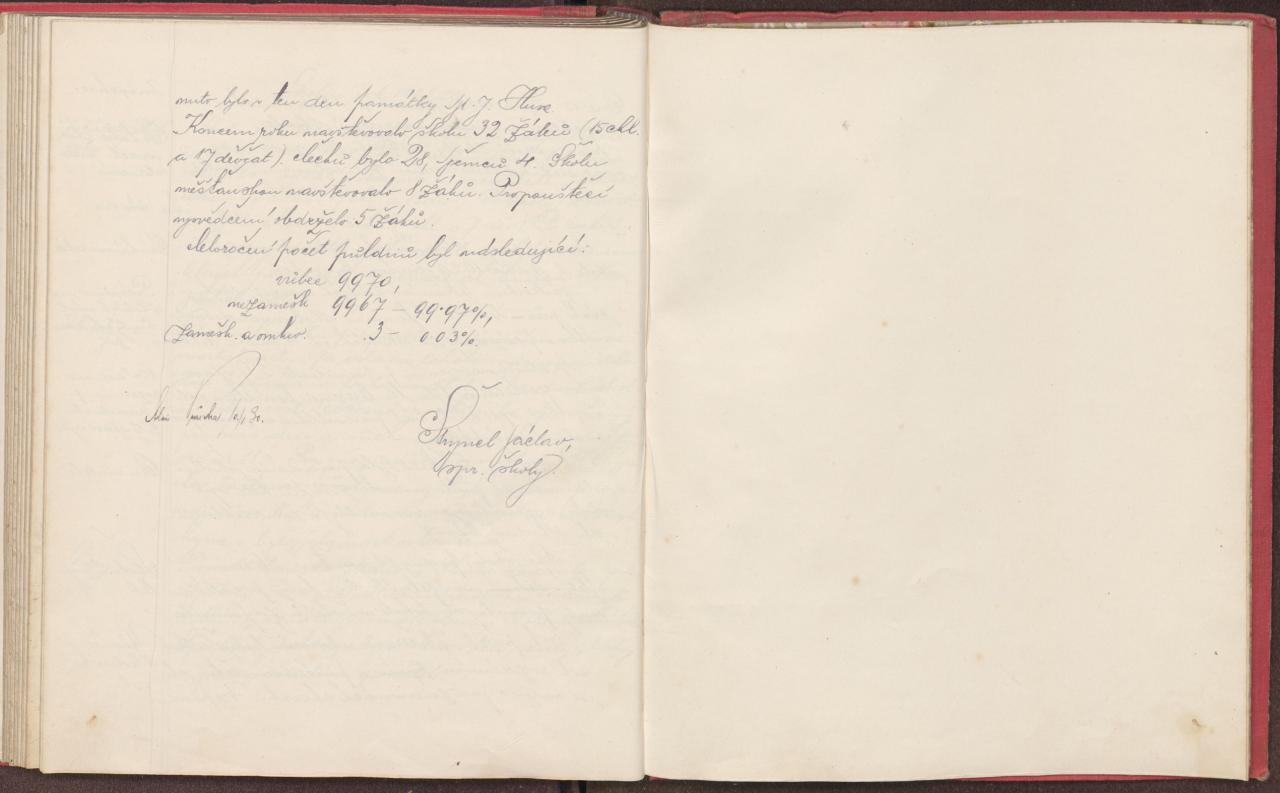 nuto bylo v ten den památky M. J. Husa.
Koncem roku navštěvovalo školu 32 žáků (15 chl.
a 17 děvčat). Čechů bylo 28, Němců 4. Školu
měšťanskou navštěvovalo 8 žáků. Propouštěcí
vysvědčení obdrželo 5 žáků.
Celoroční počet půldnů byl následující:
vůbec 9970,
nezamešk 9967 – 99·97%,
Zamešk. a omluv. 3 – 0·03%.
Václav,
spr. školy.